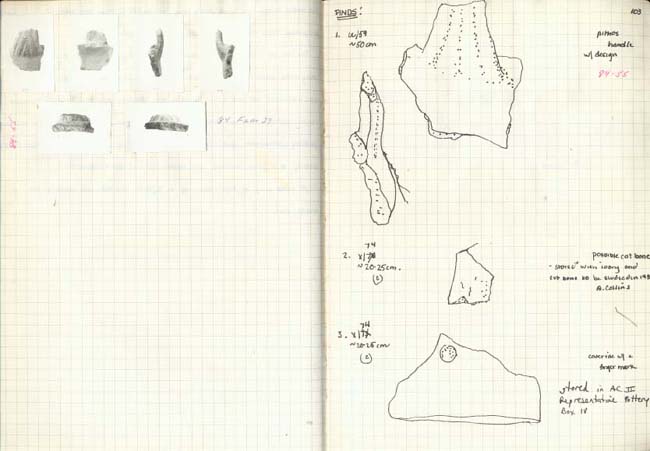 84-55
84 Fran 27
FINDS:
103
1. W/59
~50cm
pithos
handle
w/ design
84-55
2. X/74
~20-25cm.
(2)
possible cut bone
- stored with ivory and
cut bone to be studied in 198
A. Collins
3. X/74
~20-25cm
(2)
coverine w/ a
finger mark
stored in AC III
Representative Pottery
Box IV